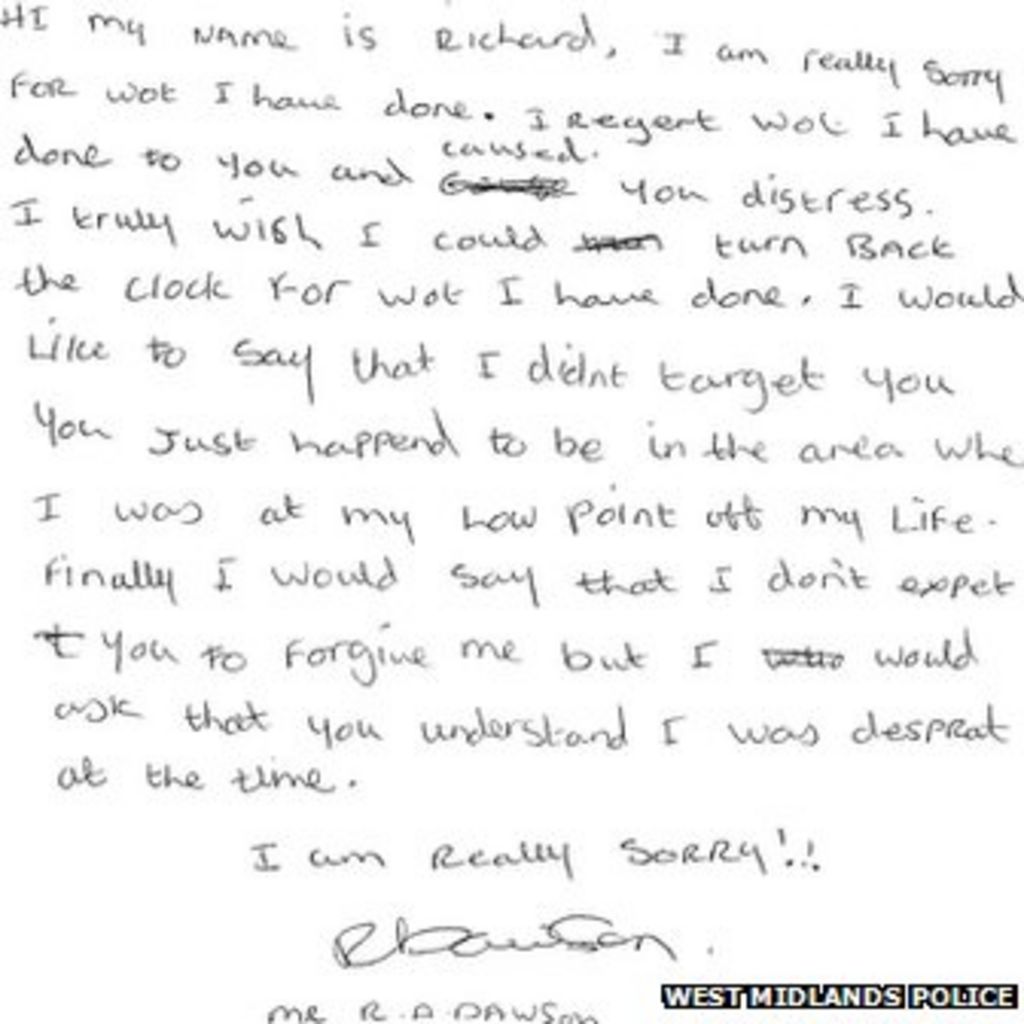 HI my NAme is Richard, I am really sorry
FOR wot I have done. I Regert wot I have
done to you and caused. you distress.
I truly wish I could turn BACK
the clock For wot I have done. I would
Like to say that I didnt target you
You Just happend to be in the area whe
I was at my Low Point off my LiFe.
Finally I would say that I don't expet
t you to Forgive me but I would
ask that you understand I was despRat
at the time.
I am Really SORRy!!!
RDawson.
MR R.A.DAWSon
WEST MIDLANDS POLICE